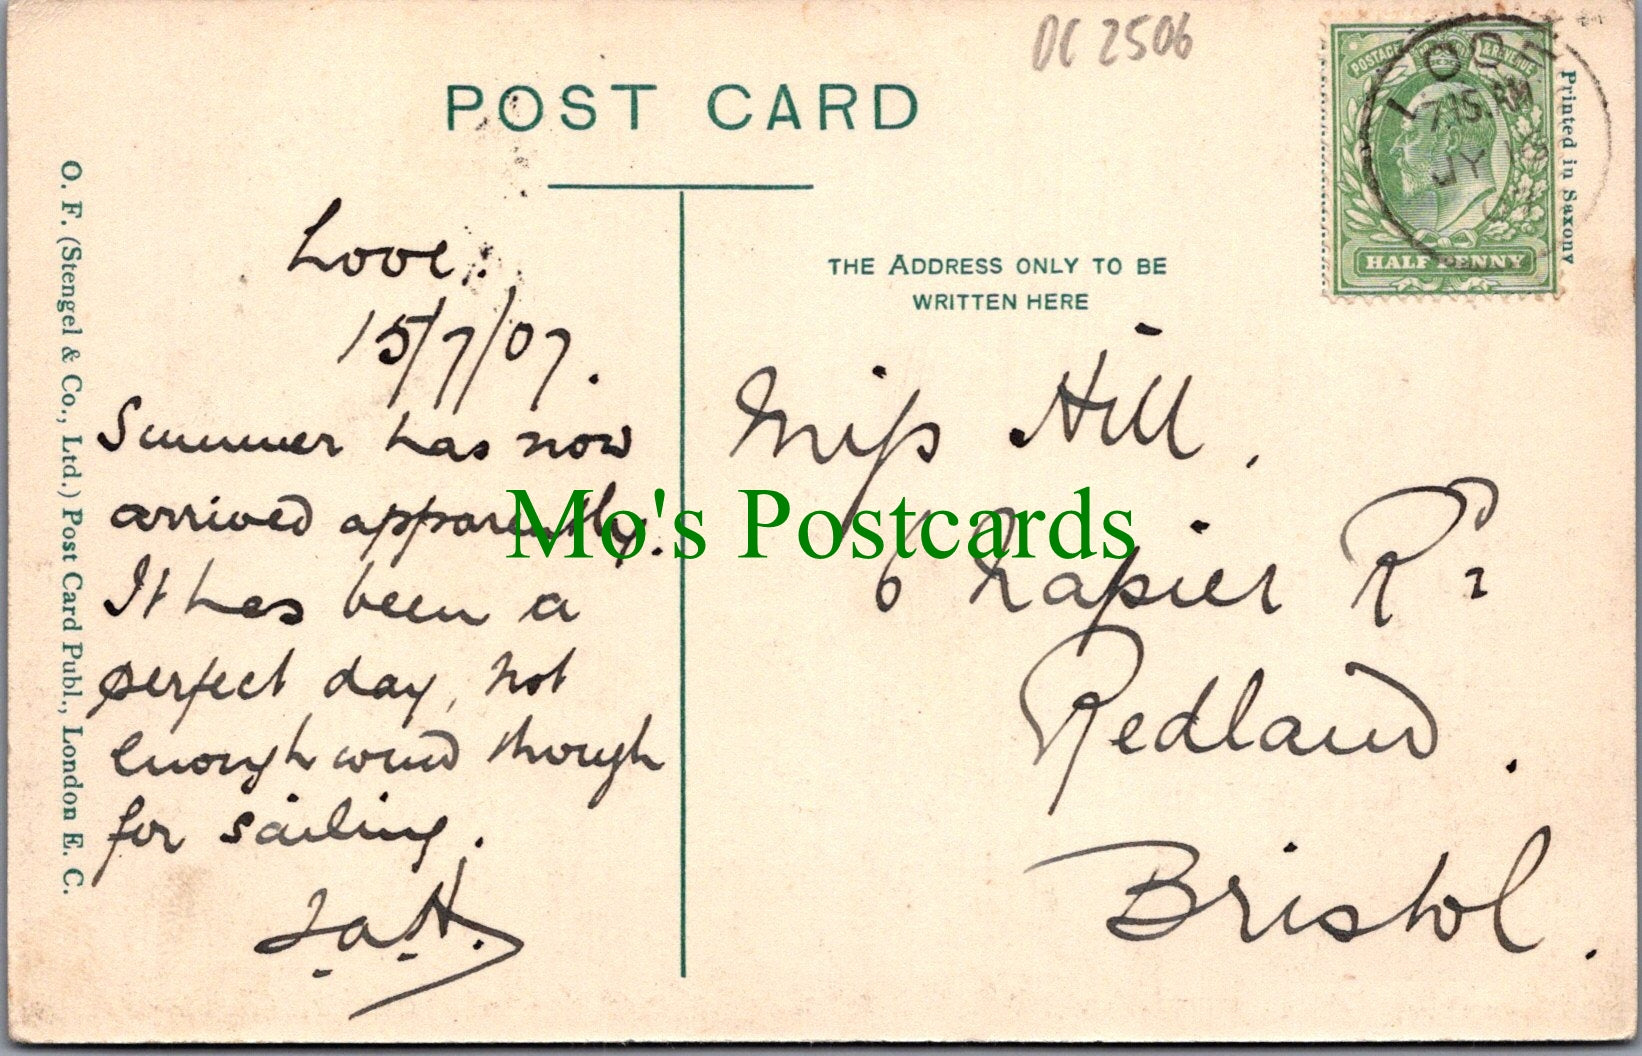 DC 2506
POST CARD
POSTAGE & REVENUE
LOOE
7.15 PM
JY
07
HALF PENNY
Printed in Saxony
O. F. (Stengel & Co., Ltd.) Post Card Publ., London E. C.
Looe.
15/7/07.
Summer has now
arrived apparently.
It has been a
perfect day, not
enough wind though
for sailing.
THE ADDRESS ONLY TO BE
WRITTEN HERE
Miss Hill.
6 Napier Rd
Redland.
Bristol.
Mo's Postcards